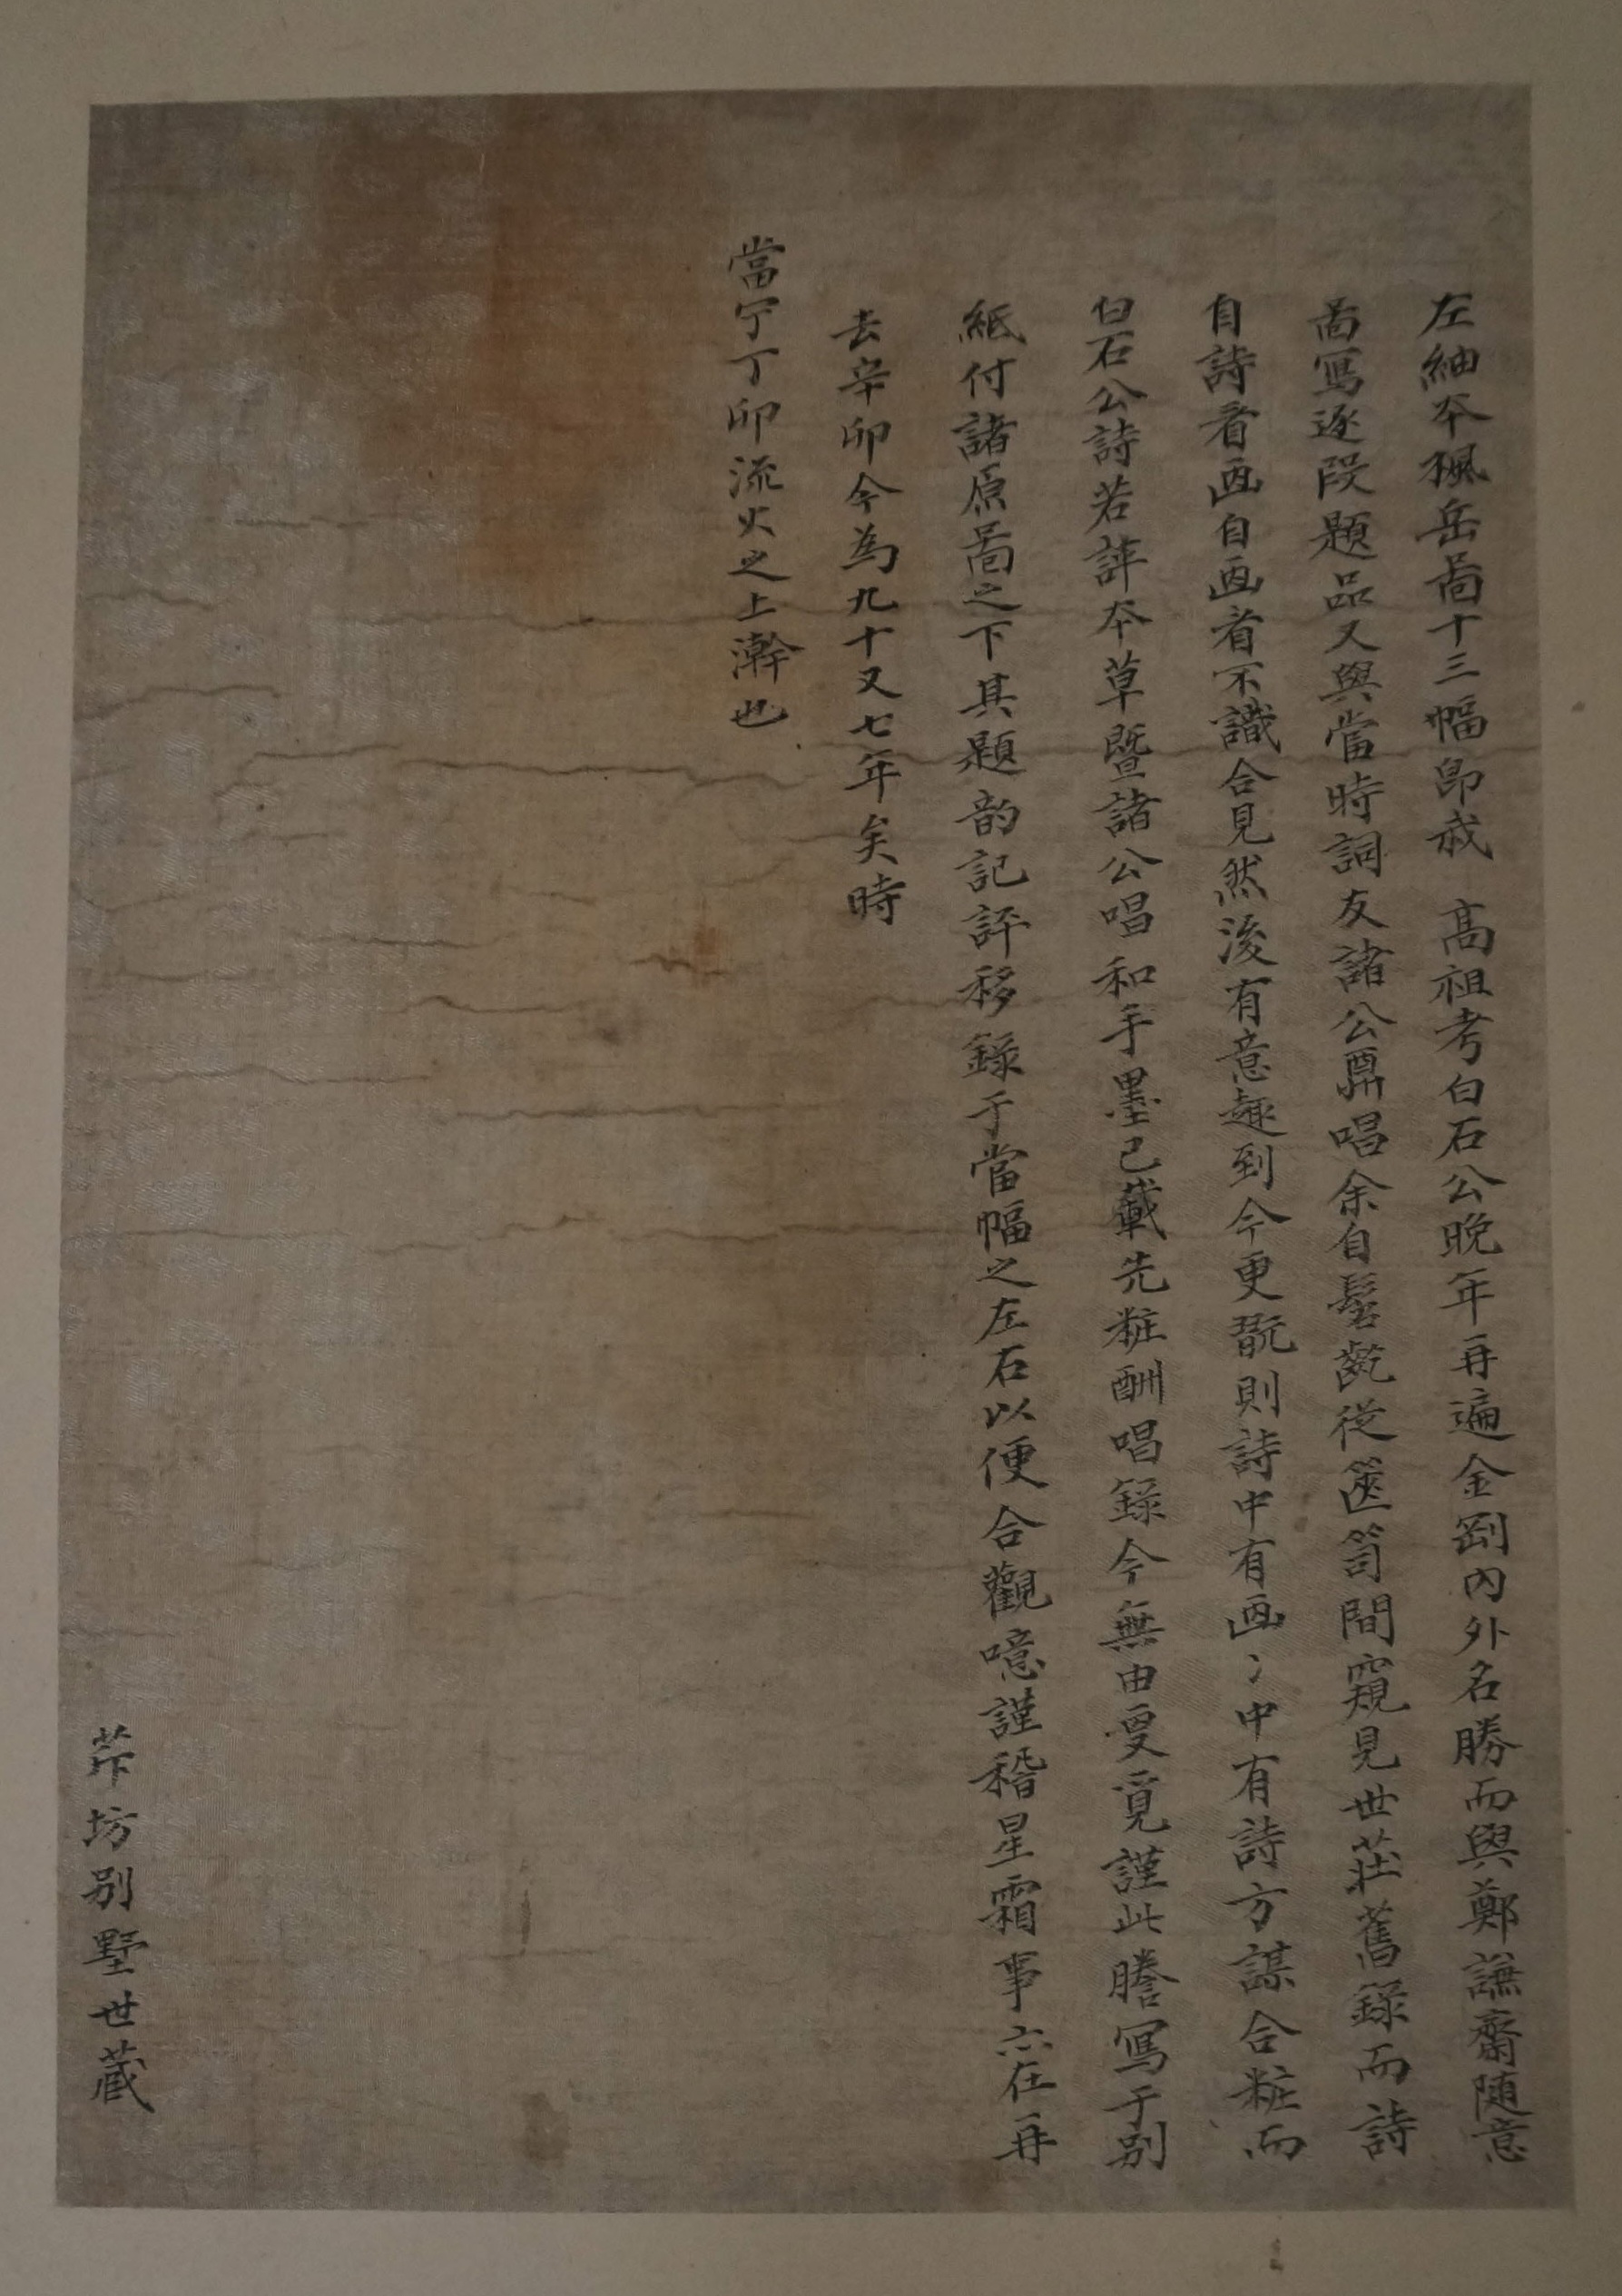 左紬夲楓岳啚十三幅卽我 高祖考白石公晩年再遍金剛內外名勝而與鄭謙齋随意
啚寫逐段題品又與當時詞友諸公賡唱余自髫齔從篋笥間窺見世莊舊錄而詩
自詩看画自画看不識合見然後有意趣到今更翫則詩中有画〻中有詩方謀合粧而
白石公詩若評夲草曁諸公唱和手墨已載先粧酬唱錄今無由更覓謹此謄寫于別
紙付諸原啚之下其題韵記評移錄于當幅之左右以便合觀噫謹稽星霜事亦在再
去辛卯今為九十又七年矣時
當宁丁卯流火之上澣也
芹坊別墅世蔵